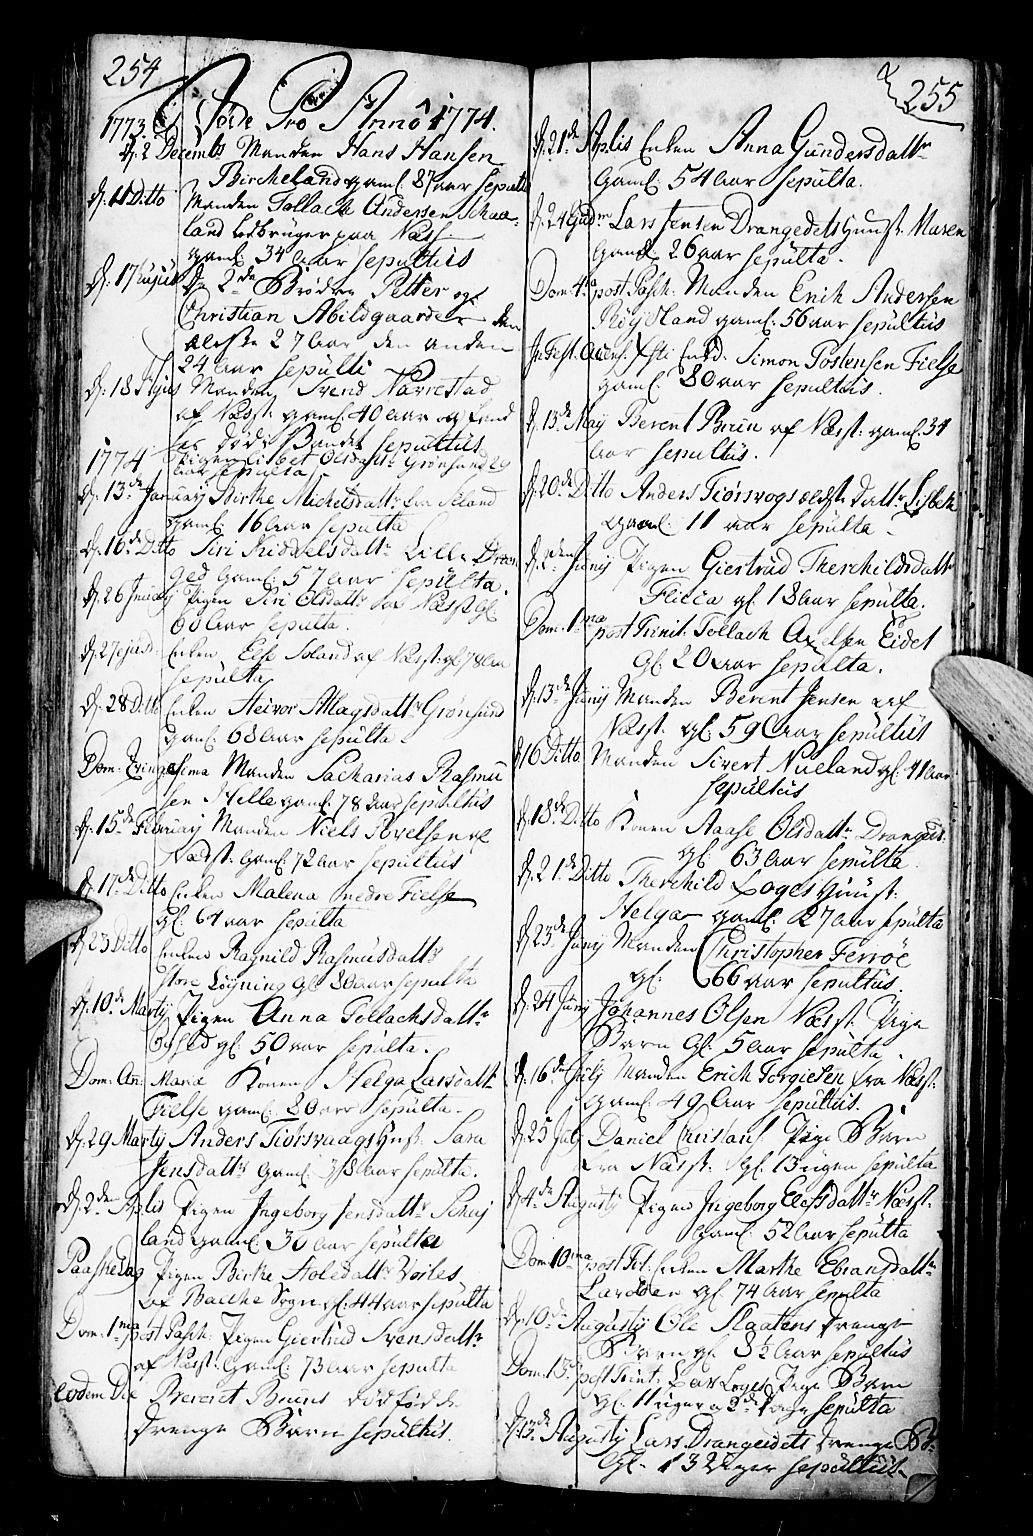 254
Døde Pro Anno 1774.
1773.
d. 2 Decembr Manden Hans Hansen
Bircheland gaml. 87 aar sepult
d. 11 Ditto Manden Tollack Andersen
land paa Næss
gaml. 34 aar sepultus
d. 17 hujus De 2de Brødre Petter og
Christian Abildgaarder den
eldste 27 aar den anden
24 aar sepulti
d. 18 hujus Manden Svend Narrestad
af Næsst. gaml. 40 aar og fand
sepultus
1774 Pigen Lisbet Olsdattr Grønsund 29
aar sepulta
d. 13de January Birthe Michelsdattr
gaml. 16 aar sepulta
d. 16de Ditto Siri Kiddelsdattr Lille Dran
ged gaml. 57 aar sepulta.
d. 26 January Pigen Siri Olsdattr af Næsst gl.
60 aar sepulta.
d. 27 ejusd. Enken Else Soland af Næsst. gl. 78 aar
sepulta
d. 28 Ditto Enken Heivor Aslagsdattr Grønsund
gaml. 68 aar sepulta.
Manden Sacharias Rasmu
sen Helle gaml. 78 aar sepultus
d. 15de February Manden Niels Povelsen af
Næst. gaml. 72 aar sepultus
d. 17de Ditto Enken Malena nedre Fielse
gl. 64 aar sepulta
d. 23 Ditto Enken Ragnild Rasmusdattr
store Løyning gl. 80 aar sepulta
d. 10de Marty Pigen Anna Tollachsdattr
gl. 50 aar sepulta.
Dom: An: Maria Konen Helga Larsdattr
Fielse gaml. 80 aar sepulta.
d. 29 Marty Anders Tiørsvaags Hust. Sara
Jensdattr gaml. aar sepulta.
d. 2den Aplis Pigen Ingeborg Jensdattr
land gaml. 30 aar sepulta
Paaske Dag Pigen Birthe
af Bacche Sogn gl. 44 aar sepulta
Dom: 1ma post Pasch: Pigen Giertrud Svensdattr
af Næsst. gaml. 73 aar sepulta
eodem Die Berent Bruuns dødfødde
drenge Barn sepultus.
255
d. 21de Aplis Enken Anna Gundersdattr
gaml. 54 aar sepulta.
d. 24 Lars Jensen Drangedets Huust. Maren
gaml. 26 aar sepulta.
Dom: 4ta post Pasch: Manden Erich Andersen
Røyseland gaml. 56 aar sepultus
In Fest. Ascens: Xsti Simon Tostensen Fielse
gaml. 80 aar sepultus.
d. 13de May Berent Bruun af Næsst. gaml. 34
aar sepultus.
d. 20de Ditto Anders Tiørsvogs eldste dattr Lisbeth
gaml. 11 aar sepulta.
d. 2den Juny Pigen Giertrud Therchildsdattr
Flicca gl. 18 aar sepulta.
Dom: 1ma post Trinit: Tollach Axelsen Eidet
gl. 20 aar sepulta.
d. 13de Juny Manden Berent Jensen af
Næsst. gl. 59 aar sepultus
d. 16 Ditto Manden Sivert Nueland gl. 41 aar
sepultus
d. 18de Ditto Konen Aaase Olsdattr Dranged.
gl. 63 aar sepulta.
d. 21de Ditto Therchild Loges Huust.
Helga gaml. 27 aar sepulta
d. 23de Juny Manden Christopher Ferrøe
gl. 66 aar sepultus.
d. 24 Juny Johannes Olsen Næsst. Pige
Barn gl. 5 aar sepulta.
d. 16de July Manden Erich Torgiersen fra Næsst.
gaml. 49 aar sepultus.
d. 25 July Daniel Christians Pige Barn
fra Næsst. gl. 13 ugen sepulta
d. 4de Augusty Pigen Ingeborg Elefsdattr Næsst.
gaml. 52 aar sepulta
Dom 10ma post Tri: Enken Marthe Ebransdattr
gl. 74 aar sepulta
d. 10de Augusty Ole Slaatens drenge
Barn gl. 3½ aar sepultus
Dom: 13 post Trinit: Lars Loges Pige Barn
gl. 11 uger 2de dage sepulta
d. 13de Augusty Lars Drangedets drenge B:
gl. 13 uger sepultus.